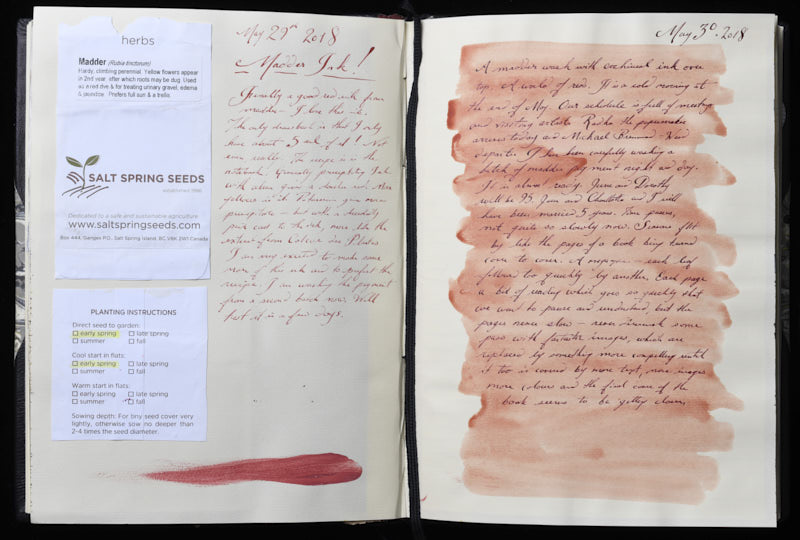 herbs
Madder (Rubia tinctorum)
Hardy, climbing perennial. Yellow flowers appear
in 2nd year, after which roots may be dug. Used
as a red dye & for treating urinary gravel, edema
& jaundice. Prefers full sun & a trellis.
SALT SPRING SEEDS
established 1986
Dedicated to a safe and sustainable agriculture
www.saltspringseeds.com
Box 444, Ganges P.O., Salt Spring Island, BC, V8K 2W1 Canada
PLANTING INSTRUCTIONS
Direct seed to garden:
☐ early spring ☐ late spring
☐ summer ☐ fall
Cool start in flats:
☐ early spring ☐ late spring
☐ summer ☐ fall
Warm start in flats:
☐ early spring ☐ late spring
☐ summer ☐ fall
Sowing depth: For tiny seed cover very
lightly, otherwise sow no deeper than
2-4 times the seed diameter.
May 29th 2018
Madder Ink!
a good red ink from
madder - I love this
The only drawback is that I only
have about 5 ml of it! Not
even really. The recipe is in the
notebook.
with alum gave a
yellows in it. Potassium gave more
precipitate - but with a
pink cast to the ink, more like the
extract from
I am very excited to make some
more of this ink and to perfect the
recipe. I am washing the pigment
from a second batch now. Will
test it in a few days.
May 30, 2018
A madder wash with cochineal ink over
top. A world of red. It is a cold morning at
the end of May. Our schedule is full of meetings
and visiting artists. Radha the papermaker
arrives today and Michael
departs. I have been carefully washing a
batch of madder pigment night and day.
It is almost ready. June and Dorothy
will be 95. June and Charlotte and I will
have been married 5 years. Time passes,
not quite so slowly now. Seasons flit
by like the pages of a book being turned
cover to cover. A - each leaf
follows too quickly by another. Each page
a bit of writing which goes so quickly that
we want to pause and understand but the
pages never slow - never diminish some
pass with fantastic images, which are
replaced by something more compelling until
it too is covered by more text, more images
more colours and the final cover of the
book seems to be getting closer.